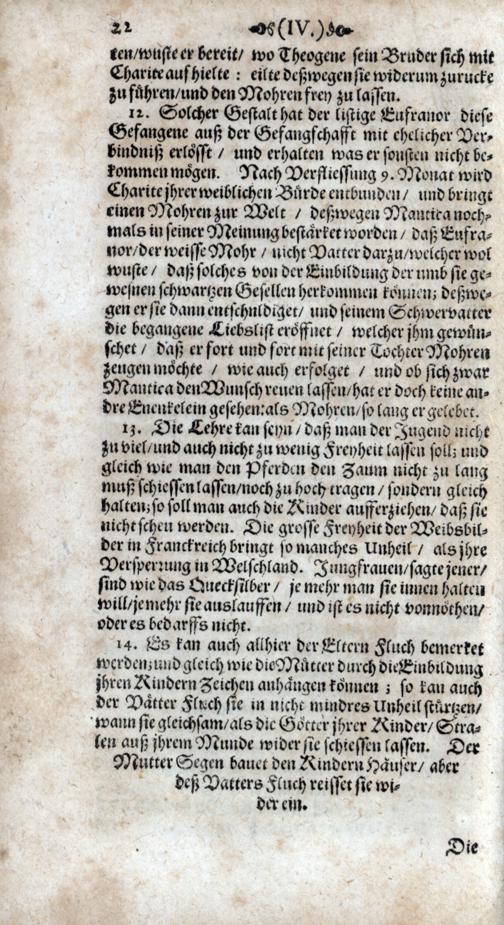 22 (IV.)
ten/wuste er bereit/ wo Theogene sein Bruder sich mit
Charite auf hielte : eilte deßwegen sie widerum zurucke
zu führen/und den Mohren frey zu lassen.
12. Solcher Gestalt hat der listige Eufranor diese
Gefangene auß der Gefangschafft mit ehelicher Ver-
bindniß erlösst / und erhalten was er sonsten nicht be-
kommen mögen. Nach Verfliessung 9. Monat wird
Charite jhrer weiblichen Bürde entbunden/ und bringt
einen Mohren zur Welt / deßwegen Mantica noch-
mals in seiner Meinung bestärket worden/ daß Eufra-
nor/der weisse Mohr / nicht Vatter darzu/welcher wol
wuste / daß solches von der Einbildung der umb sie ge-
wesnen schwartzen Gesellen herkommen können; deßwe-
gen er sie dann entschuldiget/ und seinem Schwervatter
die begangene Liebslist eröffnet / welcher jhm gewün-
schet / daß er fort und fort mit seiner Tochter Mohren
zeugen möchte / wie auch erfolget / und ob sich zwar
Mantica den Wunsch reuen lassen/hat er doch keine an-
dre Enenkelein gesehen:als Mohren/so lang er gelebet.
13. Die Lehre kan seyn/ daß man der Jugend nicht
zu viel/und auch nicht zu wenig Freyheit lassen soll; und
gleich wie man den Pferden den Zaum nicht zu lang
muß schiessen lassen/noch zu hoch tragen/ sondern gleich
halten; so soll man auch die Kinder aufferziehen/ daß sie
nicht scheu werden. Die grosse Freyheit der Weibsbil-
der in Franckreich bringt so manches Unheil/ als jhre
Versperrung in Welschland. Jungfrauen/sagte jener/
sind wie das Quecksilber / je mehr man sie innen halten
will/je mehr sie auslauffen / und ist es nicht vonnöthen/
oder es bedarffs nicht.
14. Es kan auch allhier der Eltern Fluch bemerket
werden; und gleich wie die Mütter durch die Einbildung
jhren Kindern Zeichen anhängen können ; so kan auch
der Vätter Fluch sie in nicht mindres Unheil stürtzen/
wann sie gleichsam/als die Götter jhrer Kinder/ Stra-
len auß jhrem Munde wider sie schiessen lassen. Der
Mutter Segen bauet den Kindern Häuser/ aber
deß Vatters Fluch reisset sie wi-
der ein.
Die